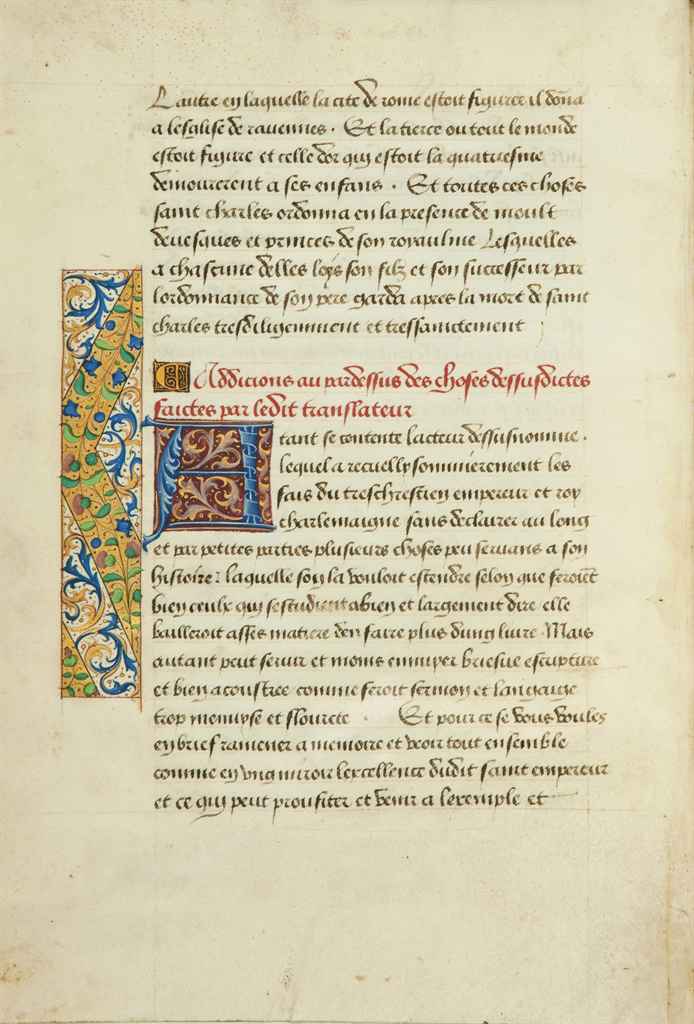 Lautre en laquelle la cite de rome estoit figuree il dōna
a leglise de rauennes . Et la tierce ou tout le monde
estoit figure et celle dor qui estoit la quatriesme
demourerent a ses enfans . Et toutes ces choses
saint charles ordonna en la presence de moult
deuesques et princes de son royaulme Lesquelles
a chascune delles loys son filz et son successeur par
lordonnance de son pere garda apres la mort de saint
charles tresdiligemment et tressainctement
Addicions au pardessus des choses dessusdictes
faictes par ledit translateur
Atant se contente lacteur dessusnomme .
lequel a recueilly sommierement les
fais du treschrestien empereur et roy
charlemaigne sans declairer au long
et par petites parties plusieurs choses peu seruans a son
histoire : laquelle son la vouloit estendre selon que feroiēt
bien ceulx qui sestudient a bien et largement dire elle
bailleroit asses matiere den faire plus dung liure . Mais
autant peut seruir et moins ennuyer briefue escripture
et bien acoustree comme feroit sermon et langaige
trop et flourete . Et pour ce se vous voules
en brief ramener a memoire et veoir tout ensemble
comme en vng miroir lexcellence dudit saint empereur
et ce qui peut proufiter et venir a lexemple et